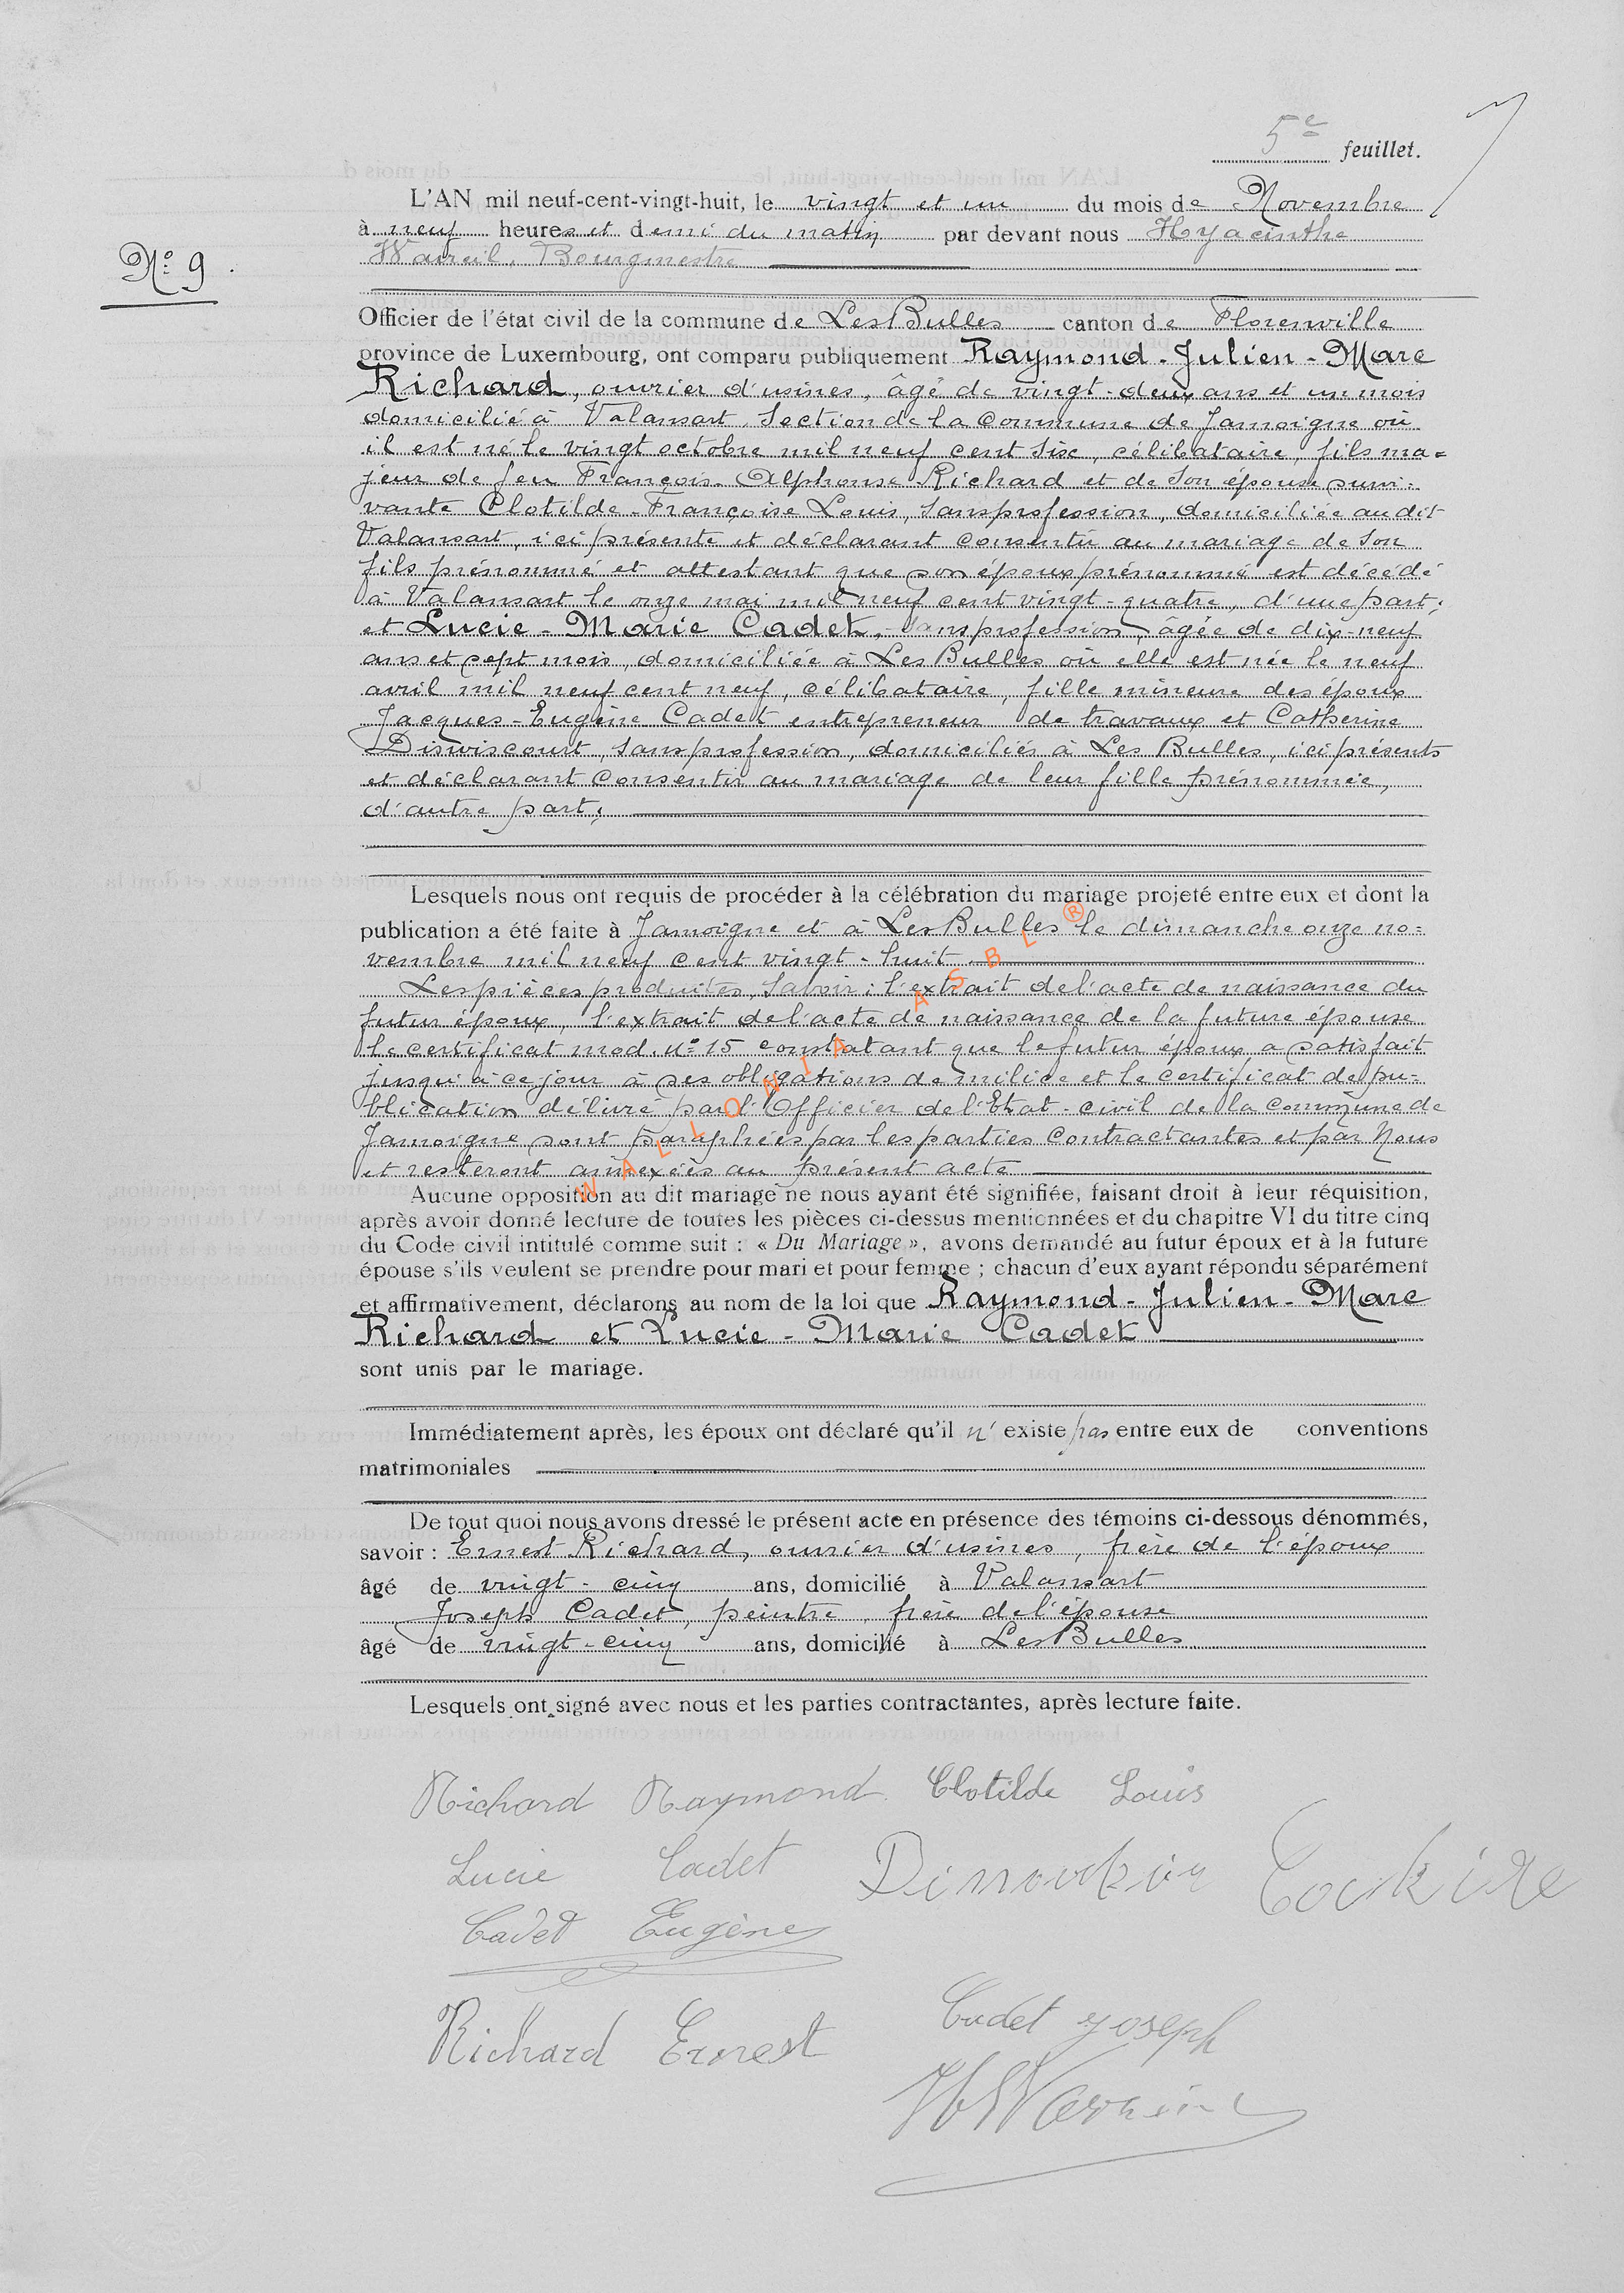 5e feuillet.
L'AN mil neuf-cent-vingt-huit, le vingt et un du mois de Novembre
à neuf heures et demi du matin par devant nous Hyacinthe
Bourgmestre
No 9.
Officier de l'état civil de la commune de Les Bulles canton de Florenville
province de Luxembourg, ont comparu publiquement Raymond-Julien-Marc
Richard, ouvrier d'usines, âgé de vingt-deux ans et un mois
domicilié à Valansart, section de la commune de Jamoigne où
il est né le vingt octobre mil neuf cent six, célibataire, fils ma=
jeur de feu François-Alphonse Richard et de son épouse survi=
vante Clotilde-Françoise Louis, sans profession, domiciliée au dit
Valansart, ici présente et déclarant consentir au mariage de son
fils prénommé et attestant que son époux prénommé est décédé
à Valansart le onze mai mil neuf cent vingt-quatre, d'une part;
et Lucie-Marie Cadet, sans profession, âgée de dix-neuf
ans et sept mois, domiciliée à Les Bulles où elle est née le neuf
avril mil neuf cent neuf, célibataire, fille mineure des époux
Jacques-Eugène Cadet entrepreneur de travaux et Catherine
sans profession, domiciliés à Les Bulles, ici présents
et déclarant consentir au mariage de leur fille prénommée,
d'autre part;
Lesquels nous ont requis de procéder à la célébration du mariage projeté entre eux et dont la
publication a été faite à Jamoigne et à Les Bulles le dimanche onze no=
vembre mil neuf cent vingt-huit.
Les pièces produites, savoir: l'extrait de l'acte de naissance du
futur époux, l'extrait de l'acte de naissance de la future épouse
le certificat mod. no 15 constatant que le futur époux a satisfait
jusqu'à ce jour à ses obligations de milice et le certificat de pu=
blication délivré par l'Officier de l'Etat-civil de la commune de
Jamoigne sont paraphées par les parties contractantes et par Nous
et resteront annexées au présent acte
WALLONIA ASBL ®
Aucune opposition au dit mariage ne nous ayant été signifiée, faisant droit à leur réquisition,
après avoir donné lecture de toutes les pièces ci-dessus mentionnées et du chapitre VI du titre cinq
du Code civil intitulé comme suit : « Du Mariage », avons demandé au futur époux et à la future
épouse s'ils veulent se prendre pour mari et pour femme ; chacun d'eux ayant répondu séparément
et affirmativement, déclarons au nom de la loi que Raymond-Julien-Marc
Richard et Lucie-Marie Cadet
sont unis par le mariage.
Immédiatement après, les époux ont déclaré qu'il n'existe pas entre eux de conventions
matrimoniales
De tout quoi nous avons dressé le présent acte en présence des témoins ci-dessous dénommés,
savoir : Ernest Richard, ouvrier d'usines, frère de l'époux
âgé de vingt-cinq ans, domicilié à Valansart
Joseph Cadet, peintre, frère de l'épouse
âgé de vingt-cinq ans, domicilié à Les Bulles
Lesquels ont signé avec nous et les parties contractantes, après lecture faite.
Richard Raymond Clotilde Louis
Lucie Cadet
Cadet Eugène
Richard Ernest Cadet Joseph